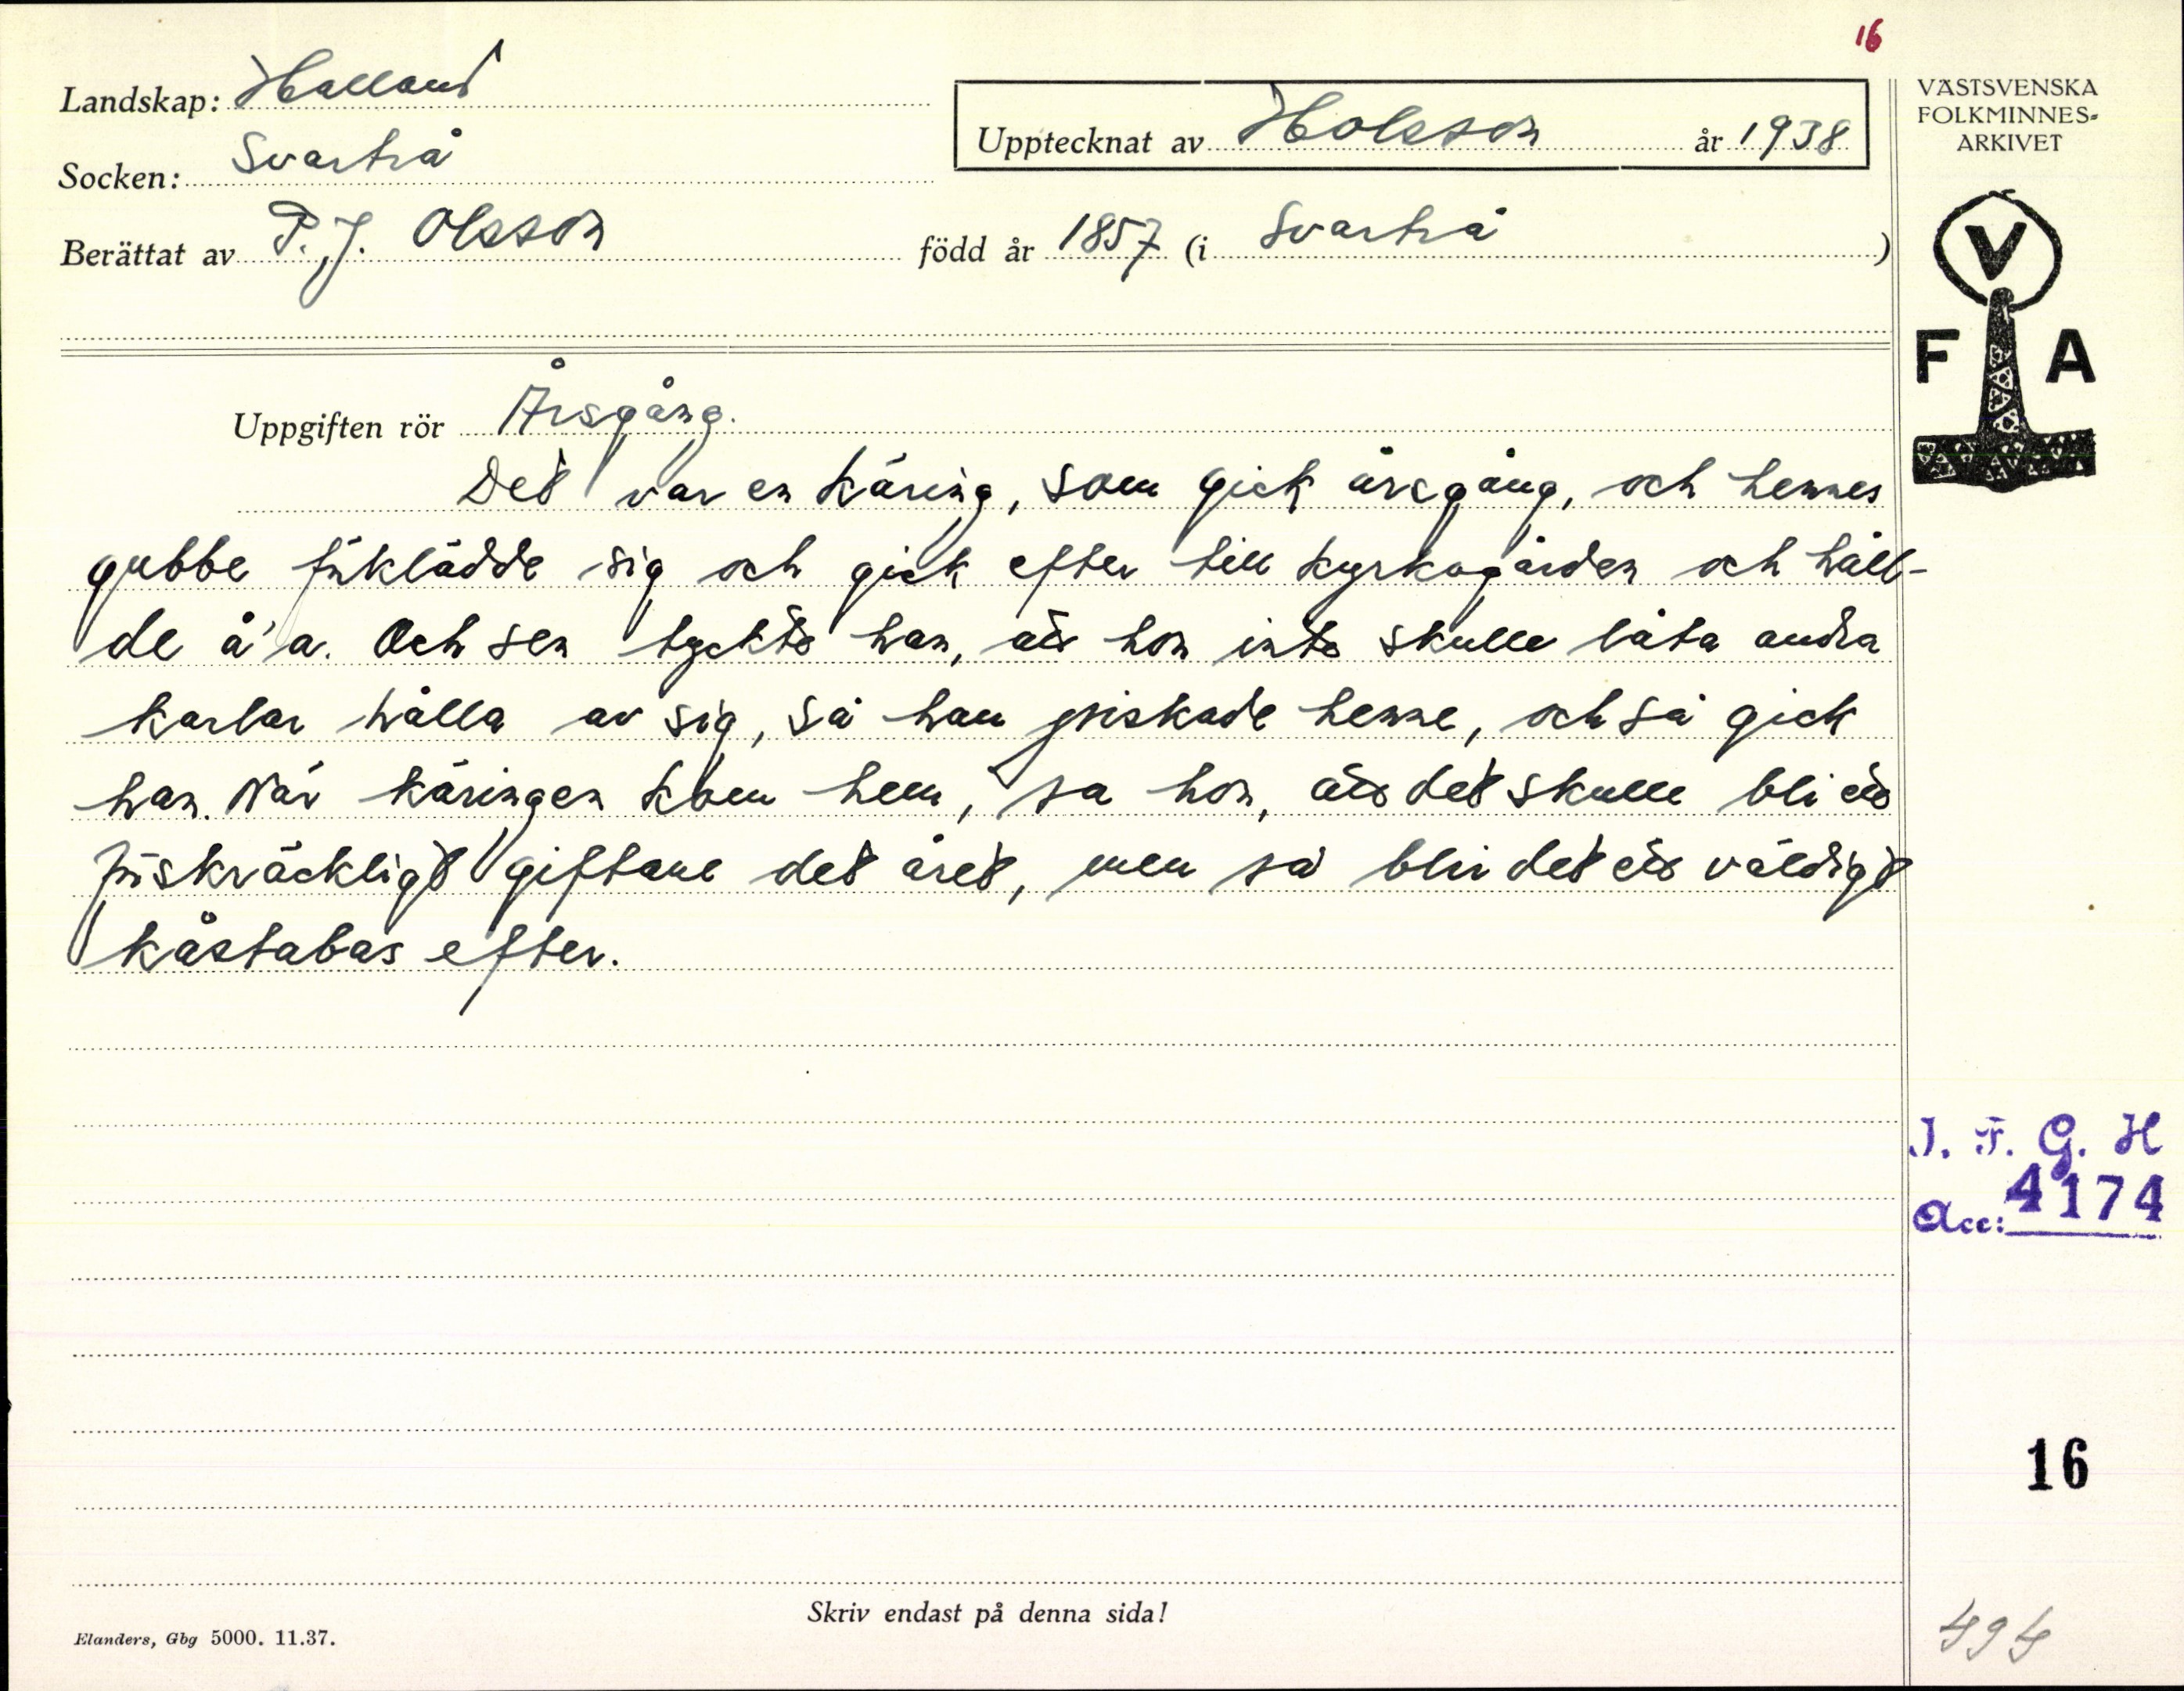 16
Landskap: Halland
Upptecknat av Holsson år 1938
Socken: Svartrå
Berättat av P. J. Olsson född år 1857 (i Svartrå)
VÄSTSVENSKA
FOLKMINNES-
ARKIVET
V
F A
Uppgiften rör Årsgång.
Det var en käring, som gick årsgång, och hennes
gubbe förklädde sig och gick efter till kyrkogården och håll-
de å'a. Och sen tyckte han, att hon inte skulle låta andra
karlar hålla av sig, så han piskade henne, och så gick
han. När käringen kom hem, sa hon, att det skulle bli ett
förskräckligt giftane det året, men så blir det ett väldigt
kåstabas efter.
I. F. G. H
Acc: 4174
16
Skriv endast på denna sida!
Elanders, Gbg 5000. 11.37.
494